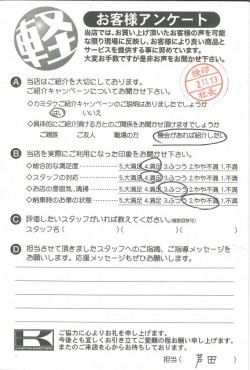 軽
お客様アンケート
当店では、お買い上げ頂いたお客様の声を可能
な限り現場に反映し、お客様により良い商品と
サービスを提供する事に努めています。
大変お手数ですが是非お声をお聞かせ下さい。
検印
社長
A 当店はご紹介を大切にしております。
ご紹介キャンペーンについてお聞かせ下さい。
◇カミタケご紹介キャンペーンのご説明はありましたでしょうか
はい いいえ
◇具体的にご紹介頂ける方とのご関係をお聞かせ頂けますでしょうか
ご親族 ご友人 職場の方 機会があれば紹介したい
B 当店を実際にご利用になった印象をお聞かせ下さい。
◇総合的な満足度 5.大満足 4.満足 3.ふつう 2.やや不満 1.不満
◇スタッフの対応 5.大満足 4.満足 3.ふつう 2.やや不満 1.不満
◇お店の雰囲気、清掃 5.大満足 4.満足 3.ふつう 2.やや不満 1.不満
◇納車時のお車の状態 5.大満足 4.満足 3.ふつう 2.やや不満 1.不満
C 評価したいスタッフがいれば教えてください。(複数回答可)
スタッフ名( )( )( )
D 担当させて頂きましたスタッフへのご指摘、ご指導メッセージを
お願いします。応援メッセージもぜひお願いします。
K
ご協力に心よりお礼を申し上げます。
今後とも宜しくお引き立てご愛顧の程お願い申し上げます。
またのご来店を心からお待ちしております。
担当( 芦田 )